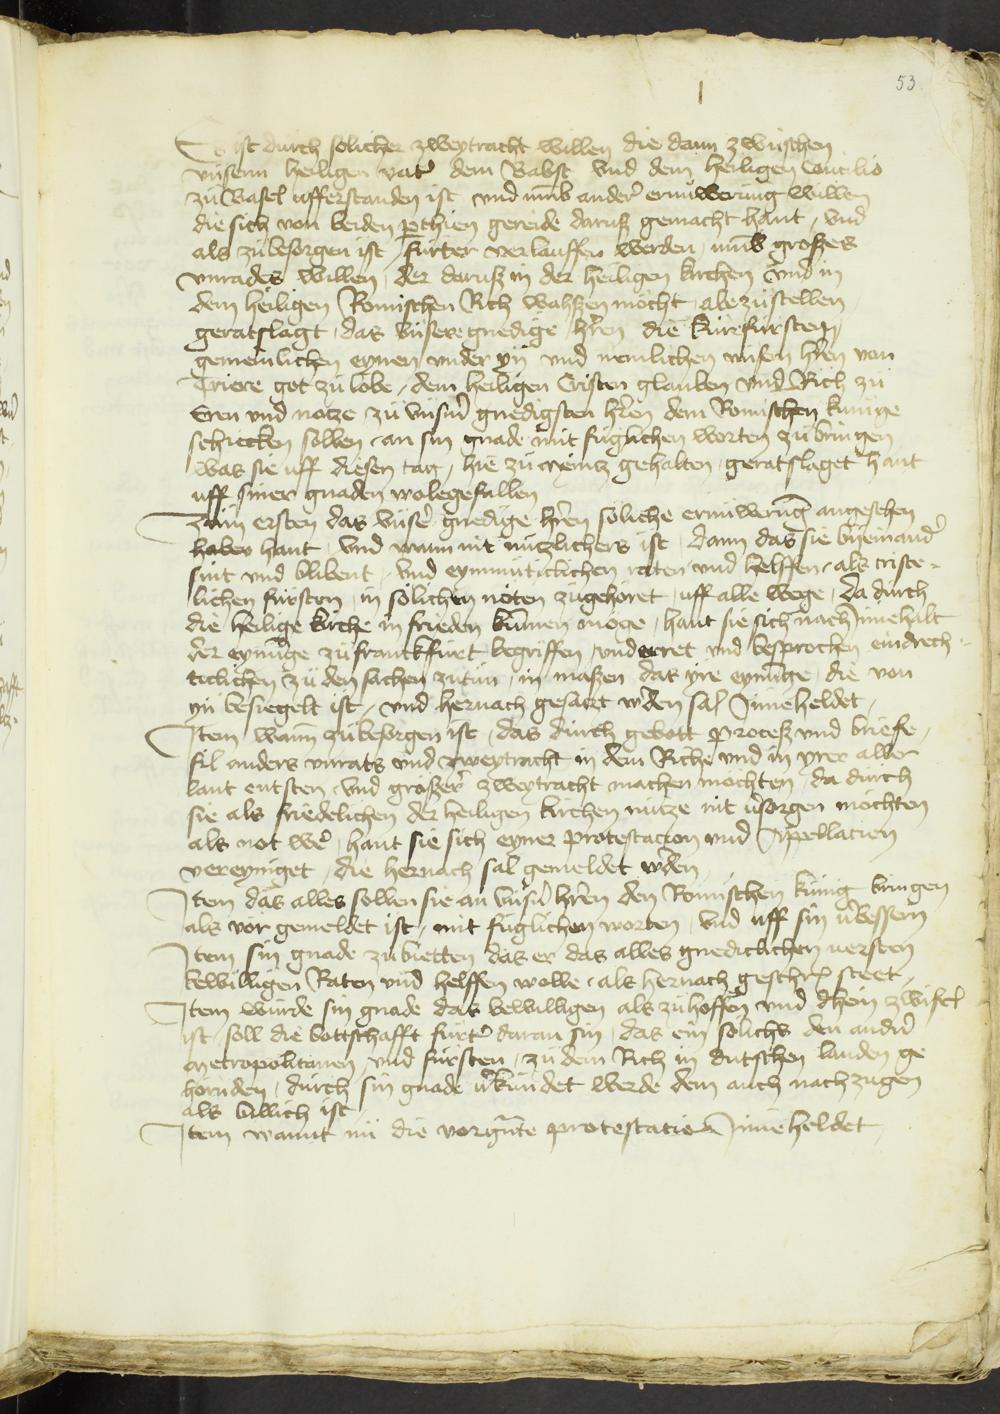 53
Es ist durch solicher zweytracht willen die dann zwuschen
vnserm heiligen vatr dem Babst vnd dem heiligen Concilio
zu Basel ufferstanden ist vnd vmb ander ernuwerung willen
die sich von beiden parthien gereide daruß gemacht hant, vnd
als zubesorgen ist furter verlauffen werden, vmb großes
vnrades willen, der daruß in der heiligen kirchen vnd in
dem heiligen Romischen Rich wahßen mocht, abezustellen
geratslagt, das vnsere gnedige hren die kurefursten,
gemeinlichen eynen vnder yn vnd nemlichen vnsern hren von
Triere got zu lobe, dem heiligen Cristen glauben vnd Rich zu
Eren vnd notze, zu vnsrm gnedigsten hren dem Romischen kunige
schicken sollen, an sin gnade mit fuglichen worten zu bringen
was sie uff diesen tag, hie zu meintz gehalten, geratslaget hant
uff siner gnaden wolegefallen
Zum ersten das vnser gnedige hren soliche ernuwerung angesehen
haben hant, vnd wann nit nutzlichers ist, dann das sie byeinandr
sint vnd blibent, vnd eynmuticlichen raten vnd helffen, als criste-
lichen fursten in solichen noten zugehoret, uff alle wege, da durch
die heilige kirche in frieden kumen moge, hant sie sich nach Innehalt
der eynunge zu franckfurt begriffen vnderret vnd besprochen eindrech-
ticlichen zu den sachen zutun, in maßen das yre eynunge, die von
yn besiegelt ist, vnd hernach gesatzt wden sal Inneheldet,
Item wann zubesorgen ist, das durch gebott proceß vnd briefe,
fil anders vnrats vnd zweytracht in dem Riche vnd in yrer aller
lant entsten, vnd großer zweytracht machen mochten, da durch
sie als friedelichen der heiligen kirchen nutze nit vsorgen mochten
als not wer, hant sie sich eyner protestacion vnd Appellacien
vereyniget, die hernach sal gemeldet wden,
Item das alles sollen sie an vnsrn hren den Romischen kunig bringen
als vor gemeldet ist, mit fuglichen worten, vnd uff sin vbessern
Item sin gnade zubietten das er das alles gnediclichen versten
bewilligen Raten vnd helffen wolle, als hernach geschr steet,
Item wurde sin gnade das bewilligen als zuhoffen vnd dhein zwifel
ist, soll die bottschafft furtr daran sin, das ein solichs den andrn
metropolitanen, vnd fursten, zu dem Rich in dutschen landen ge
hornden, durch sin gnade vkundet werde dem auch nachzugen
als billich ist
Item wannt nu die vorgnte protestacio Inneheldet